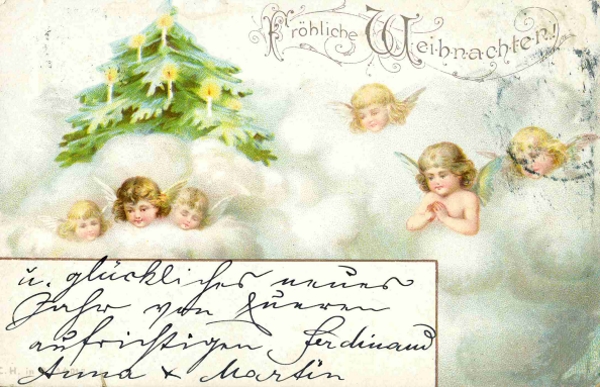 Fröhliche Weihnachten!
u. glückliches neues
Jahr von Eueren
aufrichtigen Ferdinand
Anna + Martin